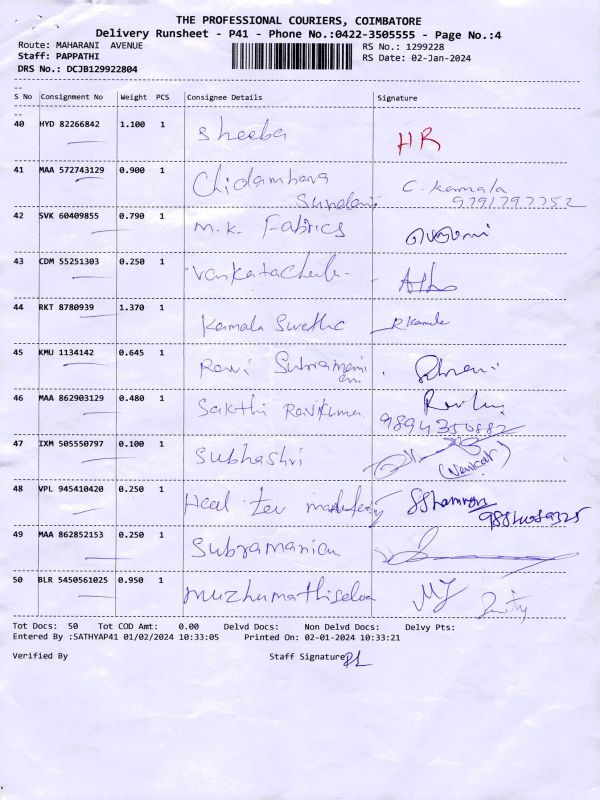 THE PROFESSIONAL COURIERS, COIMBATORE
Delivery Runsheet - P41 - Phone No.:0422-3505555 - Page No.:4
Route: MAHARANI AVENUE
RS No.: 1299228
Staff: PAPPATHI
RS Date: 02-Jan-2024
DRS No.: DCJB129922804
S No Consignment No Weight PCS Consignee Details Signature
40 HYD 82266842 1.100 1 Sheeba HR
41 MAA 572743129 0.900 1 Chidambara C. Kamala
Sundari 9791797752
42 SVK 60409855 0.790 1 M.K. Fabrics
43 CDM 55251303 0.250 1
44 RKT 8780939 1.370 1 Kamala Swetha RKamala
45 KMU 1134142 0.645 1 Ravi Subramani
an
46 MAA 862903129 0.480 1 Sakthi Ravikumar
9894350882
47 IXM 505550797 0.100 1 Subhashri (Venkat)
48 VPL 945410420 0.250 1
49 MAA 862852153 0.250 1 Subramanian
50 BLR 5450561025 0.950 1 Muzhumathiselva
Tot Docs: 50 Tot COD Amt: 0.00 Delvd Docs: Non Delvd Docs: Delvy Pts:
Entered By :SATHYAP41 01/02/2024 10:33:05 Printed On: 02-01-2024 10:33:21
Verified By Staff Signature